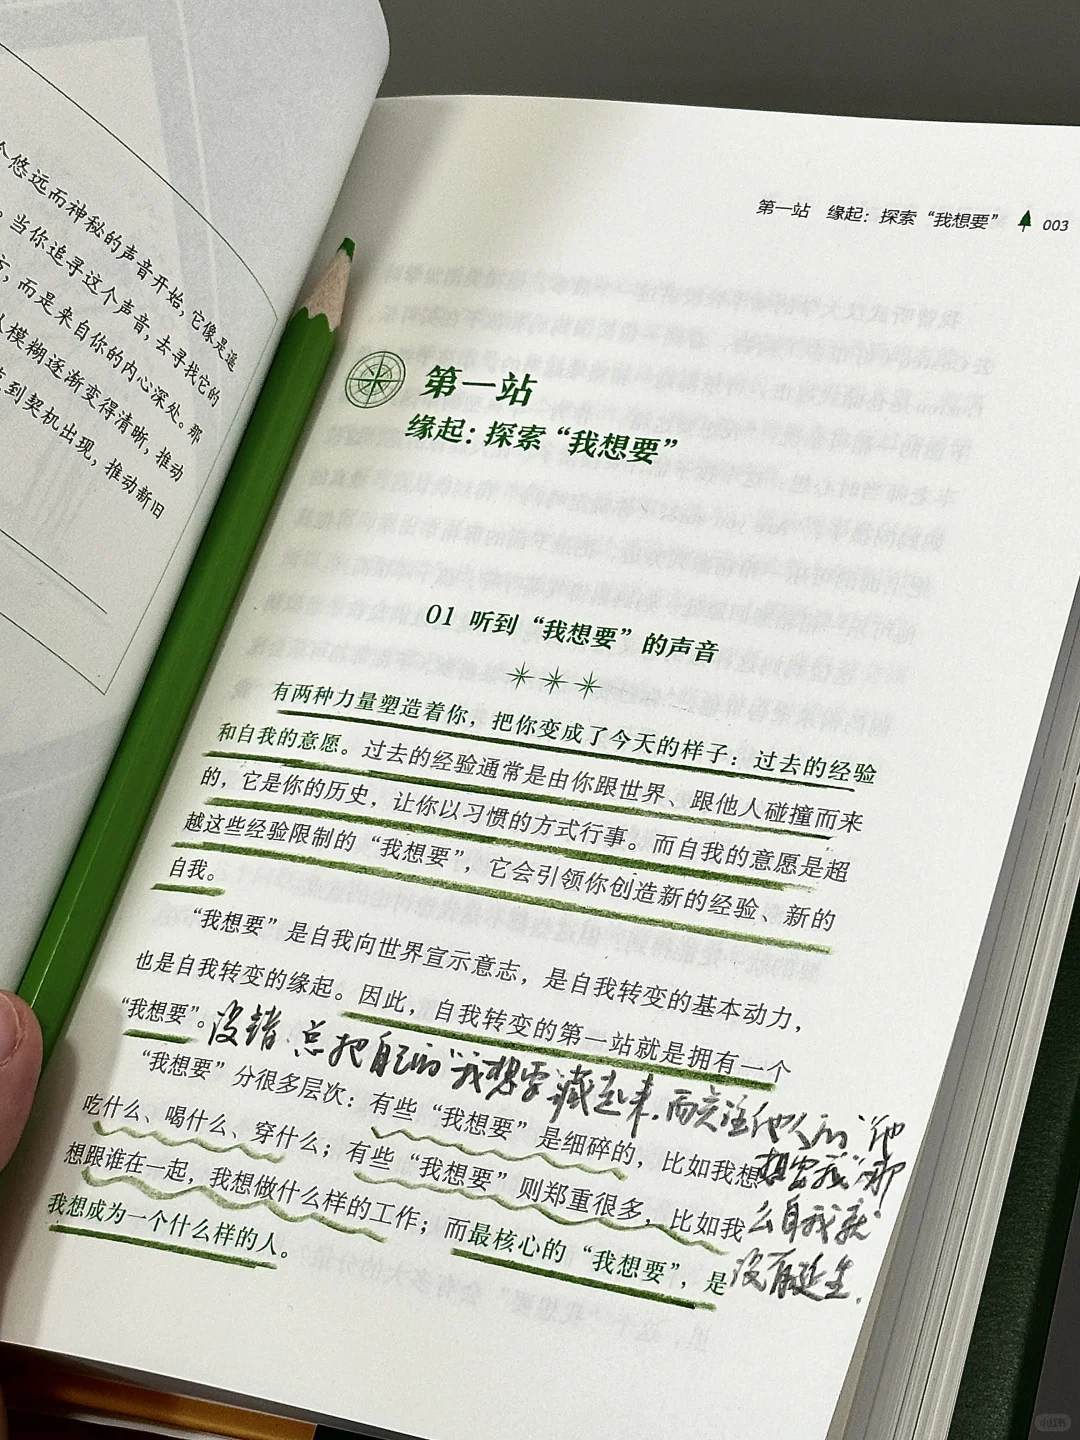 个悠远而神秘的声音开始，它像是遥
。当你追寻这个声音，去寻找它的
方，而是来自你的内心深处。那
从模糊逐渐变得清晰，推动
到契机出现，推动新旧
第一站 缘起：探索“我想要” 003
第一站
缘起：探索“我想要”
01 听到“我想要”的声音
有两种力量塑造着你，把你变成了今天的样子：过去的经验
和自我的意愿。过去的经验通常是由你跟世界、跟他人碰撞而来
的，它是你的历史，让你以习惯的方式行事。而自我的意愿是超
越这些经验限制的“我想要”，它会引领你创造新的经验、新的
自我。
“我想要”是自我向世界宣示意志，是自我转变的基本动力，
也是自我转变的缘起。因此，自我转变的第一站就是拥有一个
“我想要”。
没错.总把自己的“我想要藏起来.而关注他人的“他
想要我”那
么自我就
没有诞生.
“我想要”分很多层次：有些“我想要”是细碎的，比如我想
吃什么、喝什么、穿什么；有些“我想要”则郑重很多，比如我
想跟谁在一起，我想做什么样的工作；而最核心的“我想要”，是
我想成为一个什么样的人。
小红书